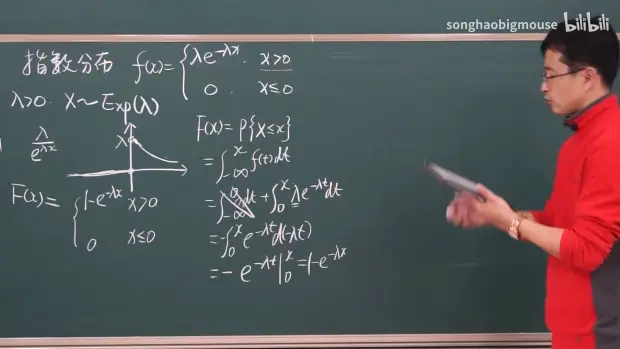 songhaobigmouse bilibili
指数分布 f(x)={λe^{-λx}. x>0
0. x≤0
λ>0. X~Exp(λ)
λ/e^{λx}
λ
F(x)={1-e^{-λx} x>0
0 x≤0
F(x)=P{X≤x}
=∫_{-∞}^{x}f(t)dt
=∫_{-∞}^{0}0dt+∫_{0}^{x}λe^{-λt}dt
=-∫_{0}^{x}e^{-λt}d(-λt)
=-e^{-λt}|_{0}^{x}=1-e^{-λx}